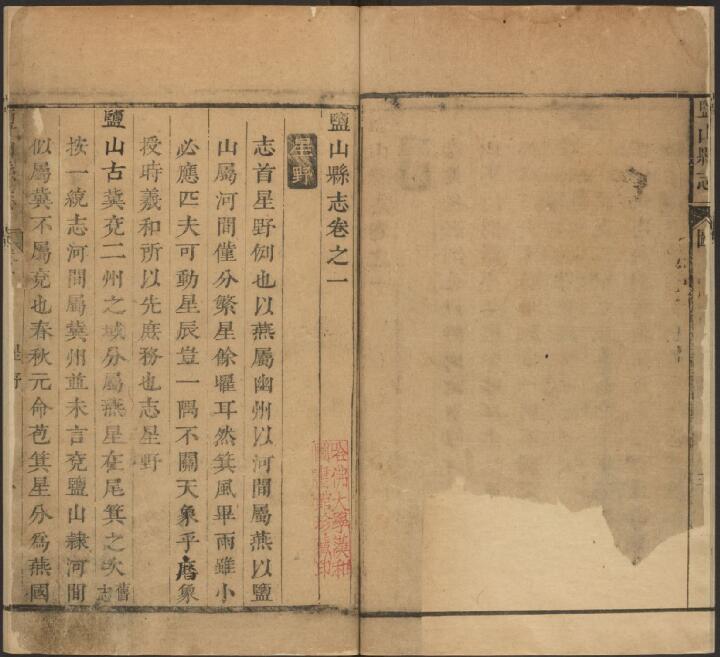 鹽山縣志卷之一
星野
志首星野例也以燕屬幽州以河間屬燕以鹽
山屬河間僅分繁星餘曜耳然箕風畢雨雖小
必應匹夫可動星辰豈一隅不關天象乎曆象
授時羲和所以先庶務也志星野
鹽山古冀兗二州之域分屬燕星在尾箕之次舊志
按一統志河間屬冀州並未言兗鹽山隸河間
似屬冀不屬兗也春秋元命苞箕星分爲燕國
星野
鹽山縣志
哈佛大學漢和
圖書館珍藏印